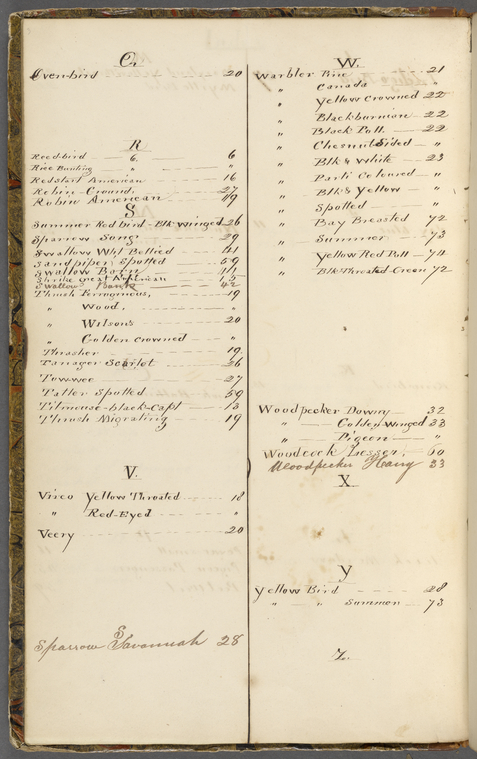 O.
Oven-bird 20
R
Reed-bird 6. 6
Rice Bunting " "
Redstart American 16
Robin-Ground. 27
Robin American 49
S
Summer Red bird-Blk Winged 26
Sparrow Song 29
Swallow Wht Bellied 41
Sandpiper Spotted 59
Swallow Barn 41
Shrike great American 15
Swallow Bank 42
Thrush Ferruginous, 19
" Wood, "
" Wilson's 20
" Golden crowned "
Thrasher 19
Tanager Scarlet 26
Towwee 27
Tatler Spotted 59
Titmouse-black-Capd 13
Thrush Migrating 19
V.
Vireo Yellow Throated 18
" Red-Eyed "
Veery 20
Sparrow Savannah 28
W.
Warbler Pine 21
" Canada "
" Yellow Crowned 22
" Blackburnian 22
" Black Poll 22
" Chesnut Sided "
" Blk & White 23
" Parti Coloured "
" Blk & Yellow "
" Spotted "
" Bay Breasted 72
" Summer 73
" Yellow Red Poll 74
" Blk Throated-Green 72
Woodpecker Downy 32
" Golden Winged 33
" Pigeon "
Woodcock Lesser, 60
Woodpecker Hairy 33
X
Y
Yellow Bird 28
" " Summer 73
Z.